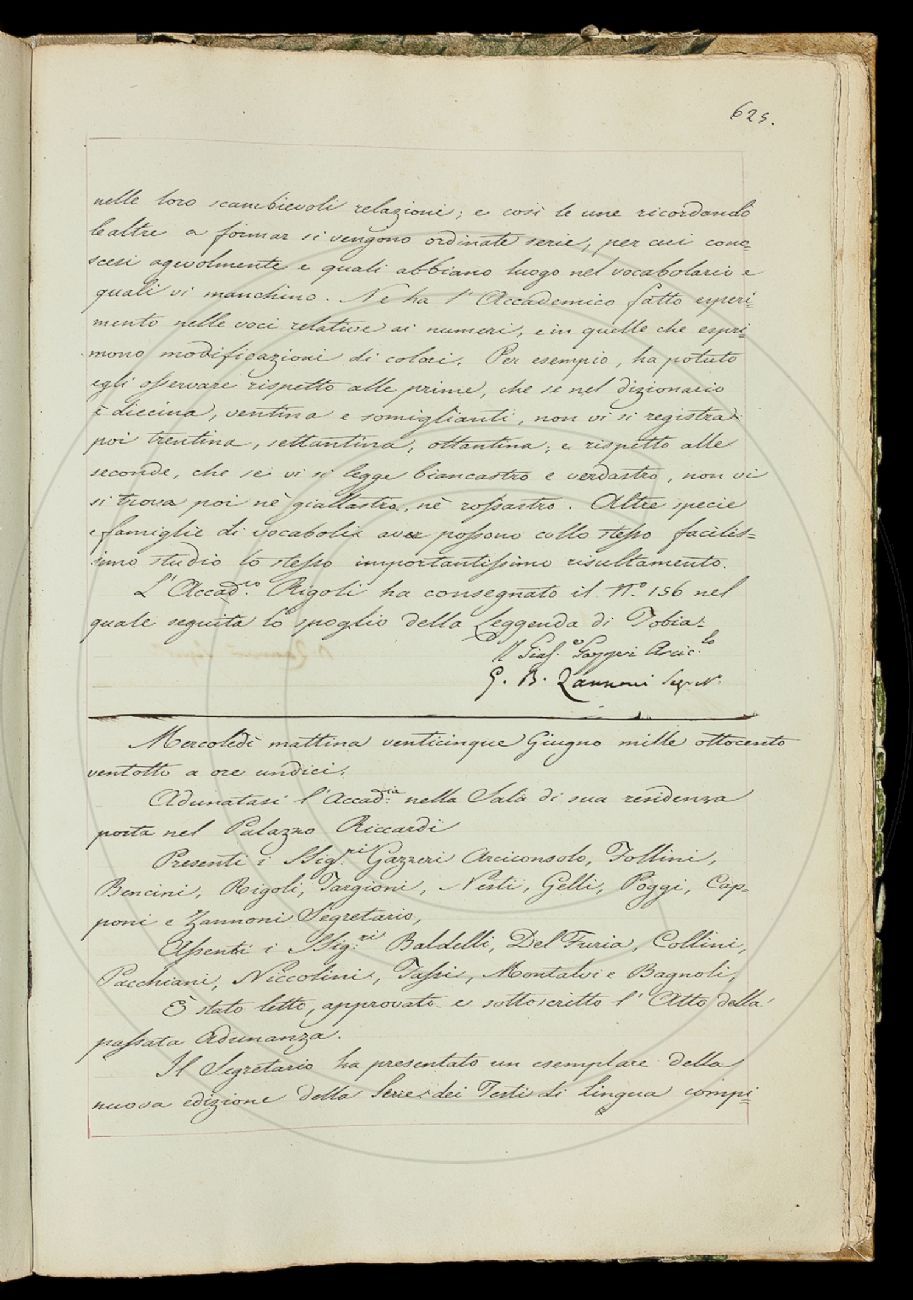 625.
nelle loro scambievoli relazioni; e così le une ricordando
le altre a formar si vengono ordinate serie, per cui cono=
scesi agevolmente e quali abbiano luogo nel vocabolario e
quali vi manchino. Ne ha l'Accademico fatto esperi=
mento nelle voci relative ai numeri, e in quelle che espri=
mono modificazioni di colori. Per esempio, ha potuto
egli osservare rispetto alle prime, che se nel dizionario
è diecina, ventina e somiglianti, non vi si registra
poi trentina, settantina, ottantina; e rispetto alle
seconde, che se vi si legge biancastro e verdastro, non vi
si trova poi nè giallastro, nè rossastro. Altre specie
e famiglie di vocaboli aver possono collo stesso facilis=
simo studio lo stesso importantissimo risultamento.
L'Accad.co Rigoli ha consegnato il N.o 156 nel
quale seguita lo spoglio della Leggenda di Tobia.
Gius.e Gazzeri Arcic.lo
G. B. Zannoni Segr.
Mercoledì mattina venticinque Giugno mille ottocento
ventotto a ore undici.
Adunatasi l'Accad.ia nella Sala di sua residenza
posta nel Palazzo Riccardi
Presenti i SSig.ri Gazzeri Arciconsolo, Follini,
Bencini, Rigoli, Targioni, Nesti, Gelli, Poggi, Cap=
poni e Zannoni Segretario,
Assenti i SSig.ri Baldelli, Del Furia, Collini,
Pacchiani, Niccolini, Tassi, Montalvi e Bagnoli,
È stato letto, approvato e sottoscritto l'Atto della
passata Adunanza.
Il Segretario ha presentato un esemplare della
nuova edizione della Serie dei Testi di lingua compi=